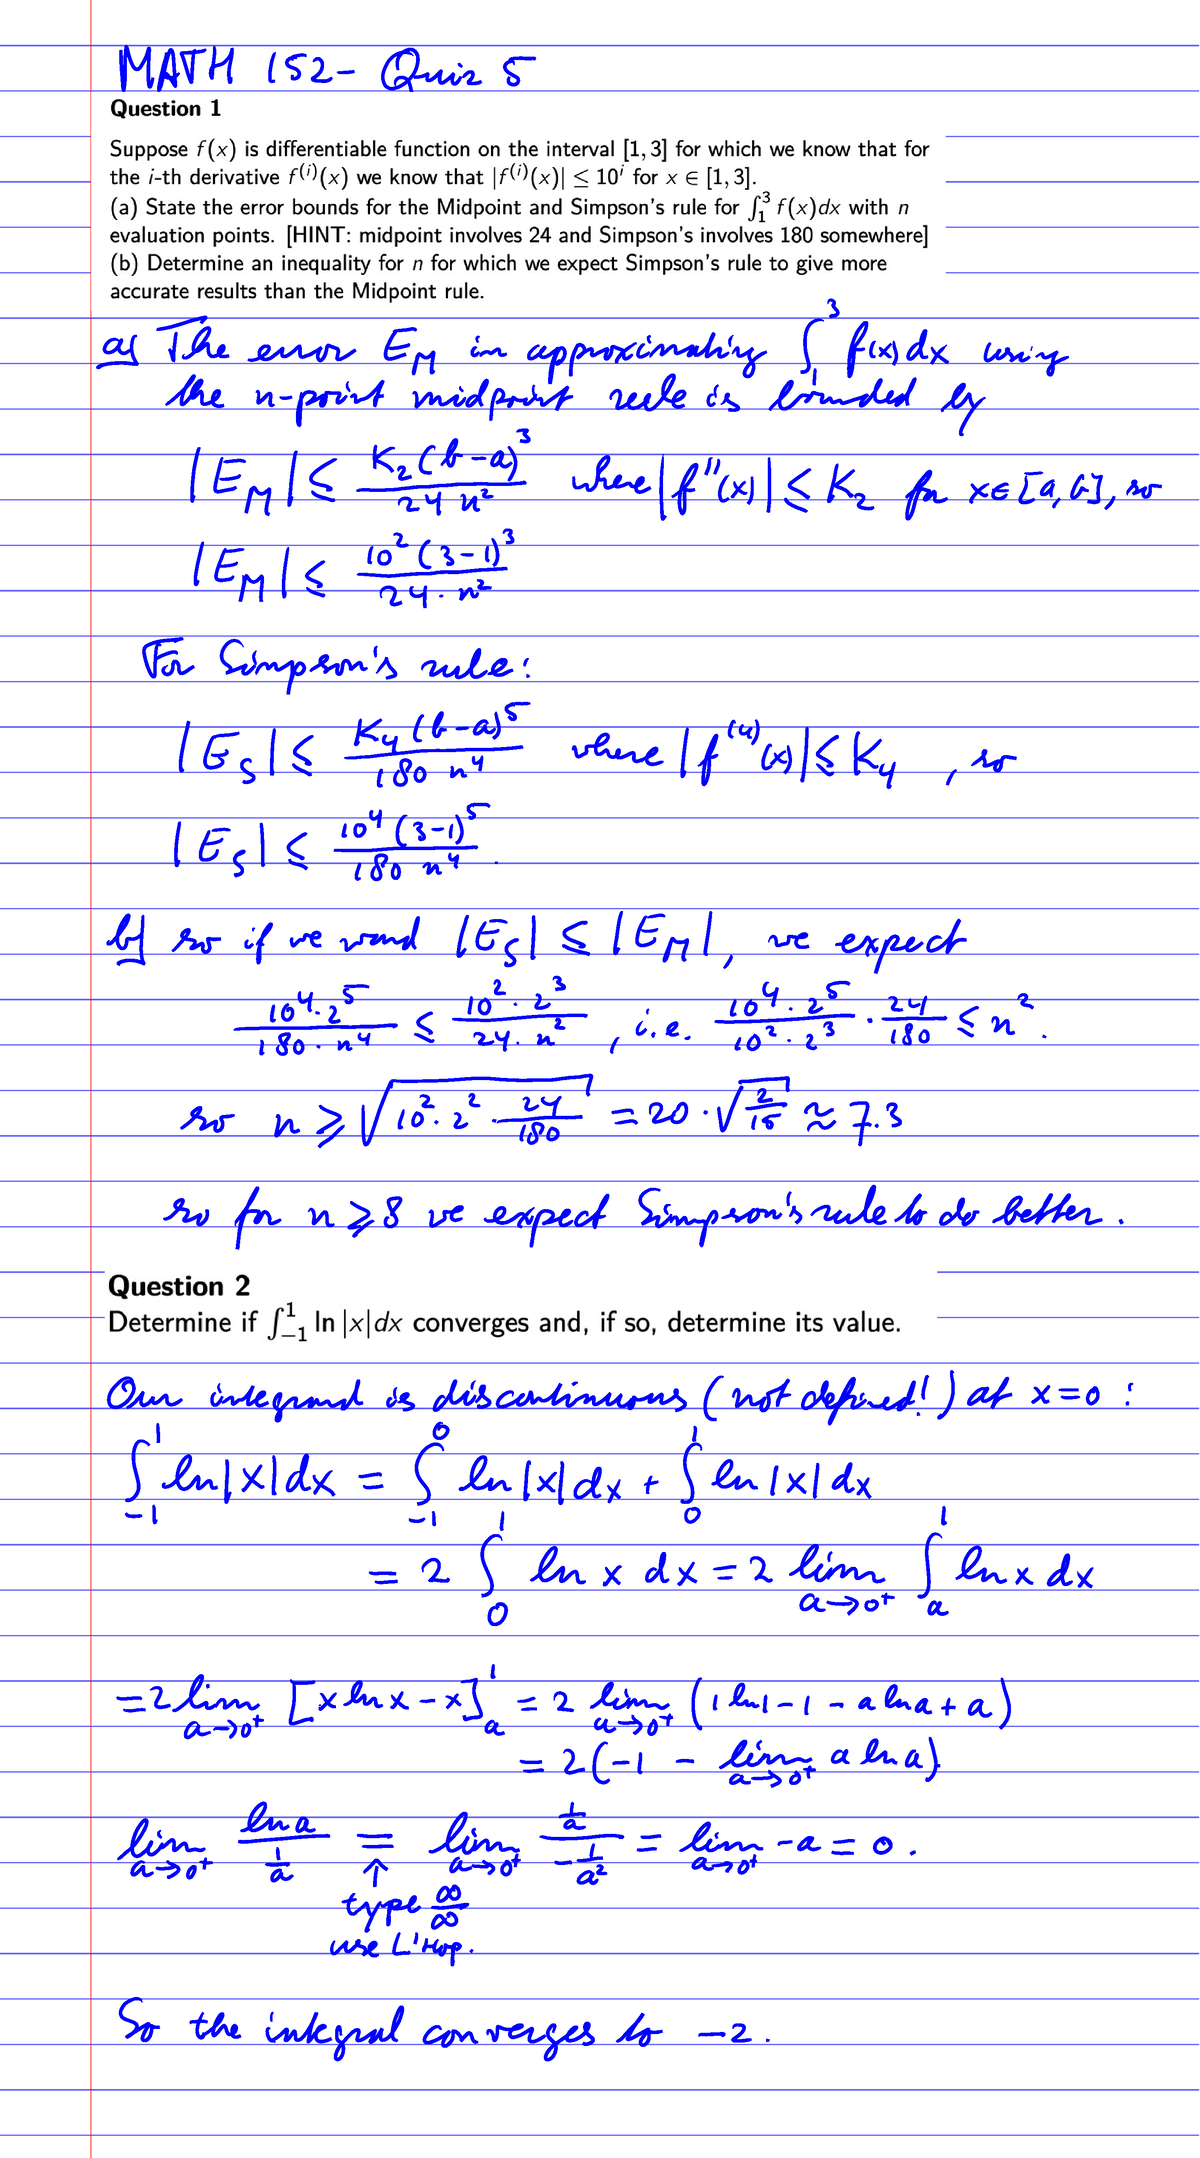 MATH 152 - Quiz 5
Question 1
Suppose f(x) is differentiable function on the interval [1, 3] for which we know that for
the i-th derivative f^(i)(x) we know that |f^(i)(x)| ≤ 10^i for x ∈ [1, 3].
(a) State the error bounds for the Midpoint and Simpson's rule for ∫_1^3 f(x)dx with n
evaluation points. [HINT: midpoint involves 24 and Simpson's involves 180 somewhere]
(b) Determine an inequality for n for which we expect Simpson's rule to give more
accurate results than the Midpoint rule.
a) The error E_M in approximating ∫_1^3 f(x) dx using
the n-point midpoint rule is bounded by
|E_M| ≤ K_2 (b-a)^3 / 24 n^2 where |f''(x)| ≤ K_2 for x ∈ [a, b], so
|E_M| ≤ 10^2 (3-1)^3 / 24 · n^2
For Simpson's rule:
|E_S| ≤ K_4 (b-a)^5 / 180 n^4 where |f^(4)(x)| ≤ K_4, so
|E_S| ≤ 10^4 (3-1)^5 / 180 n^4.
b) so if we want |E_S| ≤ |E_M|, we expect
10^4 · 2^5 / 180 · n^4 ≤ 10^2 · 2^3 / 24 · n^2, i.e. 10^4 · 2^5 / 10^2 · 2^3 · 24/180 ≤ n^2.
so n ≥ √(10^2 · 2^2 · 24/180) = 20 · √(2/15) ≈ 7.3
so for n ≥ 8 we expect Simpson's rule to do better.
Question 2
Determine if ∫_{-1}^1 ln |x|dx converges and, if so, determine its value.
Our integrand is discontinuous (not defined!) at x=0:
∫_{-1}^1 ln|x|dx = ∫_{-1}^0 ln|x|dx + ∫_0^1 ln|x|dx
= 2 ∫_0^1 ln x dx = 2 lim_{a→0+} ∫_a^1 ln x dx
= 2 lim_{a→0+} [x ln x - x]_a^1 = 2 lim_{a→0+} (1 ln 1 - 1 - a ln a + a)
= 2(-1 - lim_{a→0+} a ln a)
lim_{a→0+} ln a / (1/a) = lim_{a→0+} (1/a) / (-1/a^2) = lim_{a→0+} -a = 0.
↑
type ∞/∞
use L'Hop.
So the integral converges to -2.